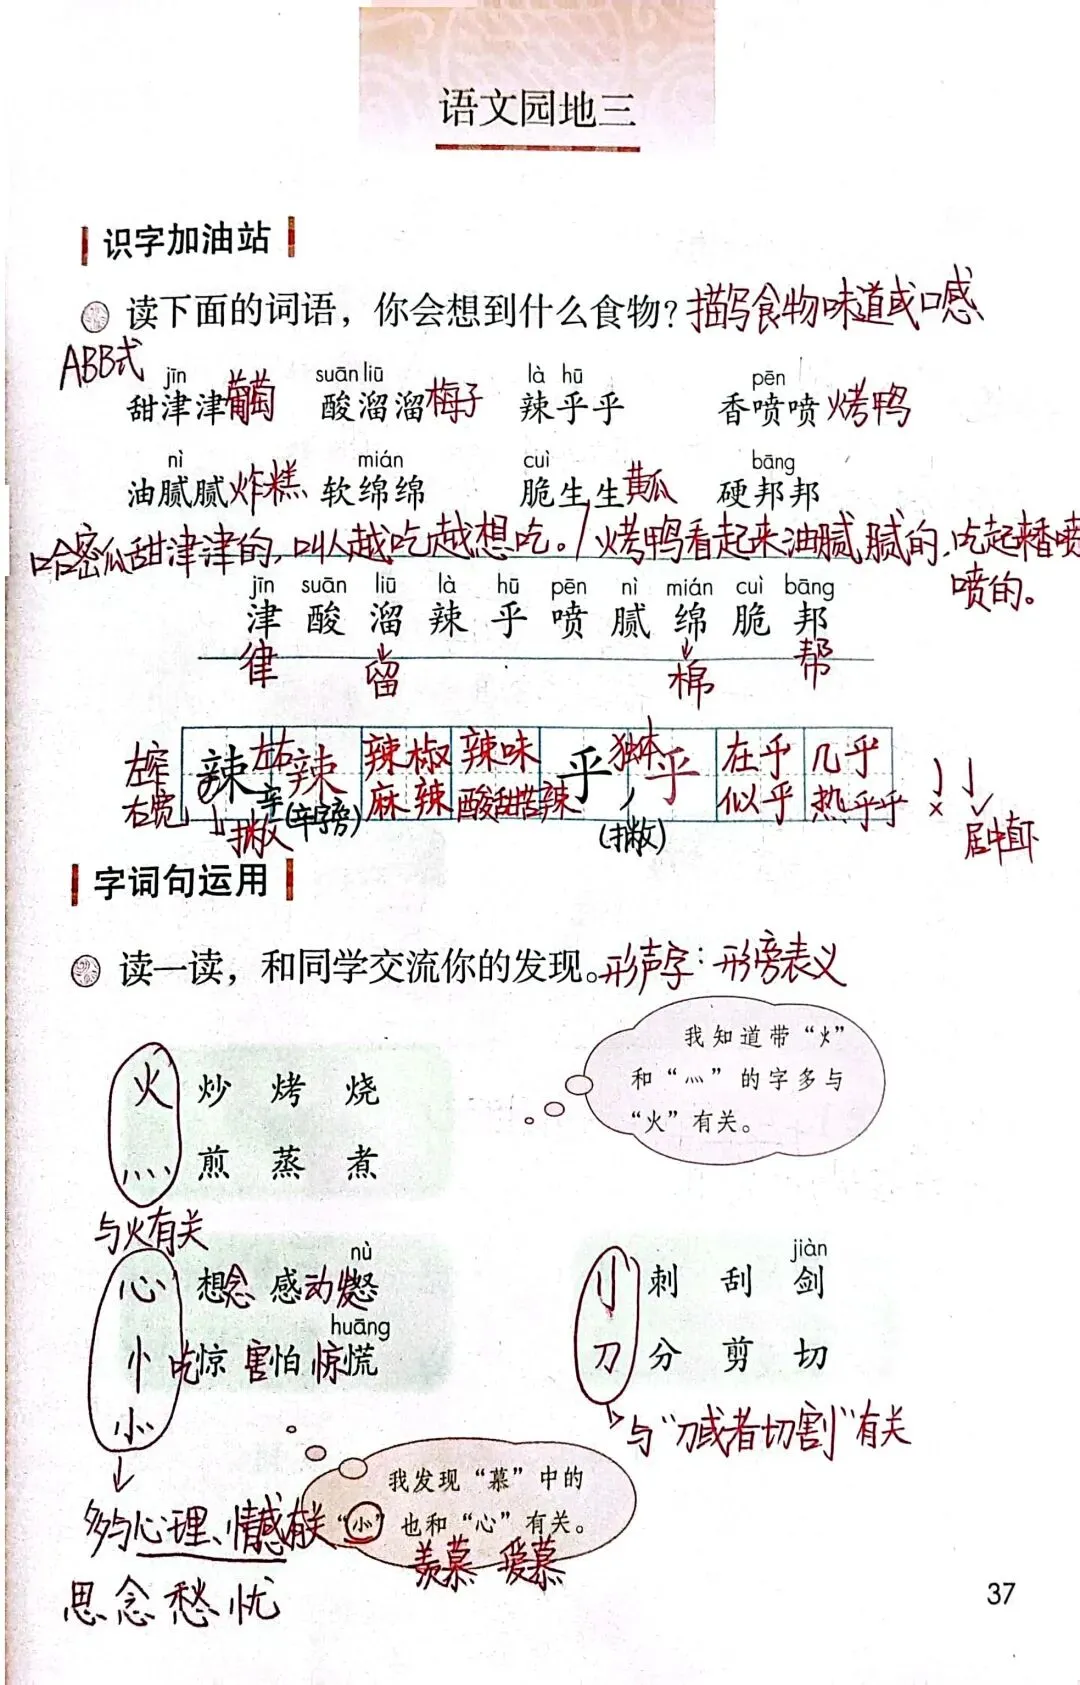 语文园地三
识字加油站
读下面的词语，你会想到什么食物？描写食物味道或口感
ABB式
jīn suān liū là hū pēn
甜津津 葡萄 酸溜溜 梅子 辣乎乎 香喷喷 烤鸭
nì mián cuì bāng
油腻腻 炸糕 软绵绵 脆生生 黄瓜 硬邦邦
哈密瓜甜津津的，叫人越吃越想吃。/烤鸭看起来油腻腻的，吃起来香喷
喷的。
jīn suān liū là hū pēn nì mián cuì bāng
津 酸 溜 辣 乎 喷 腻 绵 脆 邦
律 留 棉 帮
左窄 辣 左右 辣 辣椒 辣味 乎 独体 乎 在乎 几乎
右宽 辛(辛字旁) 麻辣 酸甜苦辣 似乎 热乎乎 ×
撇 (撇) 居中直下
字词句运用
读一读，和同学交流你的发现。形声字：形旁表义
我知道带“火”
和“灬”的字多与
“火”有关。
火 炒 烤 烧
灬 煎 蒸 煮
与火有关
nù
心 想念 感动 发怒
huāng
忄 吃惊 害怕 惊慌
⺗
jiàn
刂 刺 刮 剑
刀 分 剪 切
与“刀或者切割”有关
我发现“慕”中的
“⺗”也和“心”有关。
多与心理、情感有关
羡慕 爱慕
思念愁忧
37